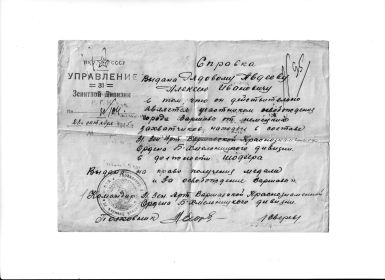 НКО СССР
УПРАВЛЕНИЕ
31
Зенитной Дивизии
РГК
22 октября 1945
Справка
Выдана Рядовому Авдееву
Алексею Ивановичу
в том что он действительно
является участником освобождения
города Варшава от немецких
захватчиков, находясь в составе
31 Зен Арт. Варшавской Краснознаменной
Ордена Б-Хмельницкого дивизии
в должности шофера
Выдана на право получения медали
"За освобождение Варшавы"
Командир 31 Зен Арт. Варшавской Краснознаменной
Ордена Б-Хмельницкого дивизии
Полковник